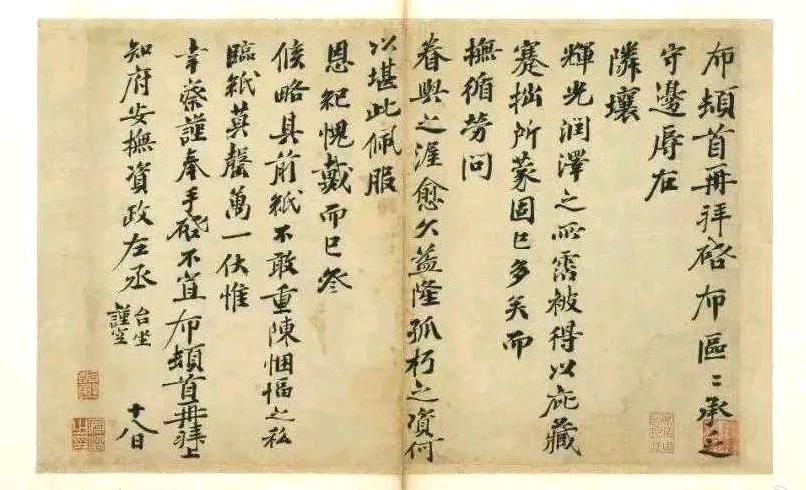 布頓首再拜啓布區〻承乏
守邊辱在
隣壤
輝光潤澤之所霑被得以庇藏
蹇拙所蒙固已多矣而
撫循勞問
眷與之渥愈久益隆孤朽之資何
以堪此佩服
恩紀愧戴而已参
候略具前紙不敢重陳悃愊之私
臨紙莫罄萬一伏惟
幸察謹奉手啓不宣布頓首再拜上
知府安撫資政左丞
台坐
謹空
十八日